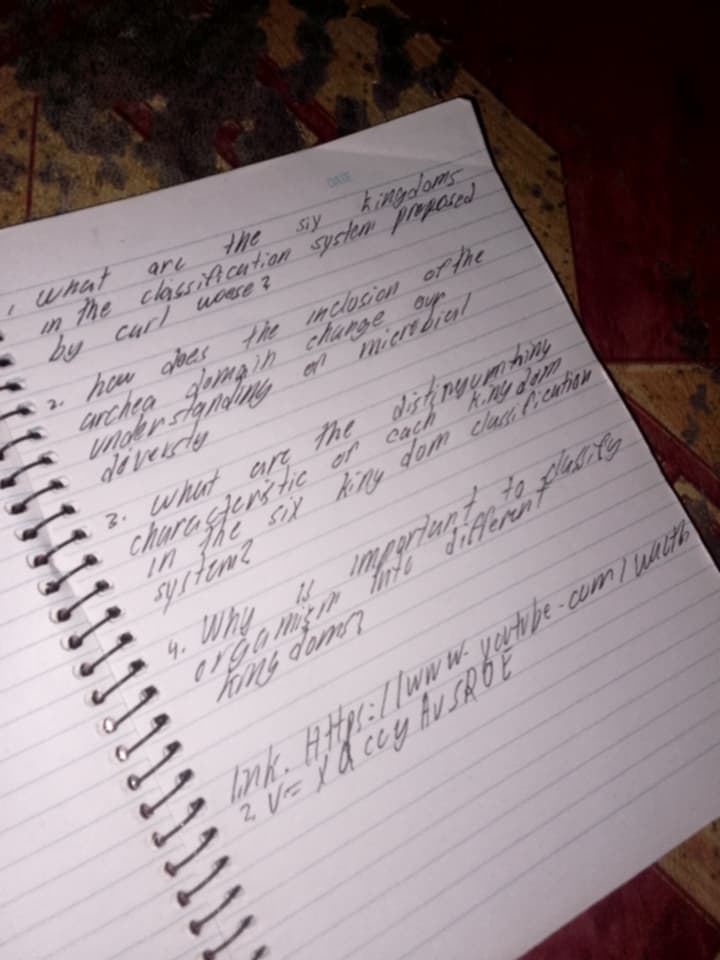 DATE
1. What are the six kingdoms
in the classification system proposed
by carl woese?
2. how does the inclusion of the
archea domain change our
understanding on microbial
diversty
3. What are the
characteristic of each kingdom
in the six king dom classification
system?
4. Why is important to classify
organism into different
king doms?
link. HttPs://www.youtube.com/watch
? v=